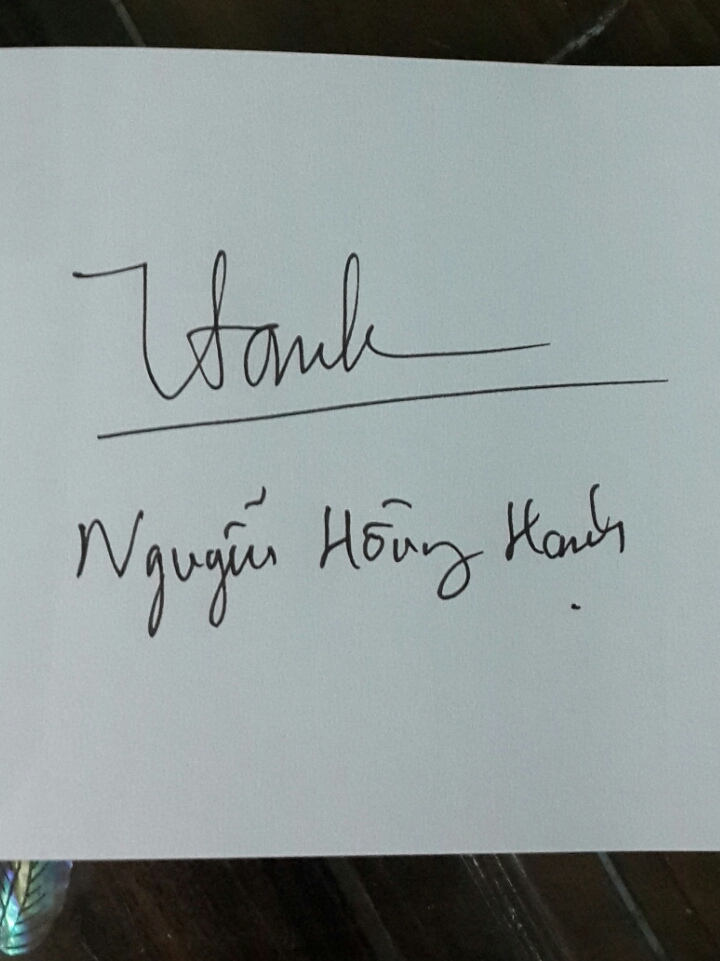 Hanh
Nguyễn Hồng Hạnh